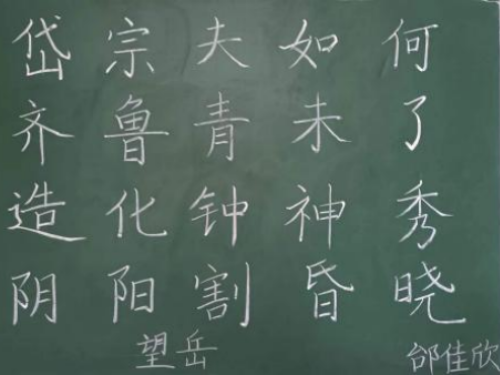 岱宗夫如何
齐鲁青未了
造化钟神秀
阴阳割昏晓
望岳
邰佳欣